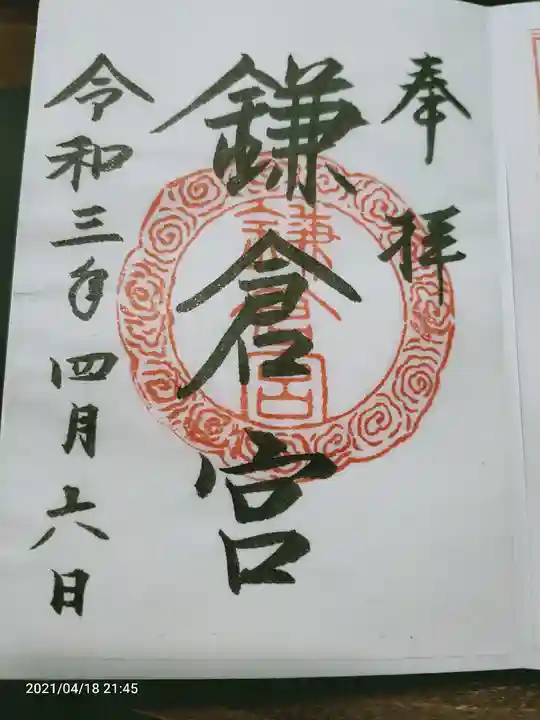 奉拝
鎌倉宮
鎌倉宮
令和三年四月六日
2021/04/18 21:45